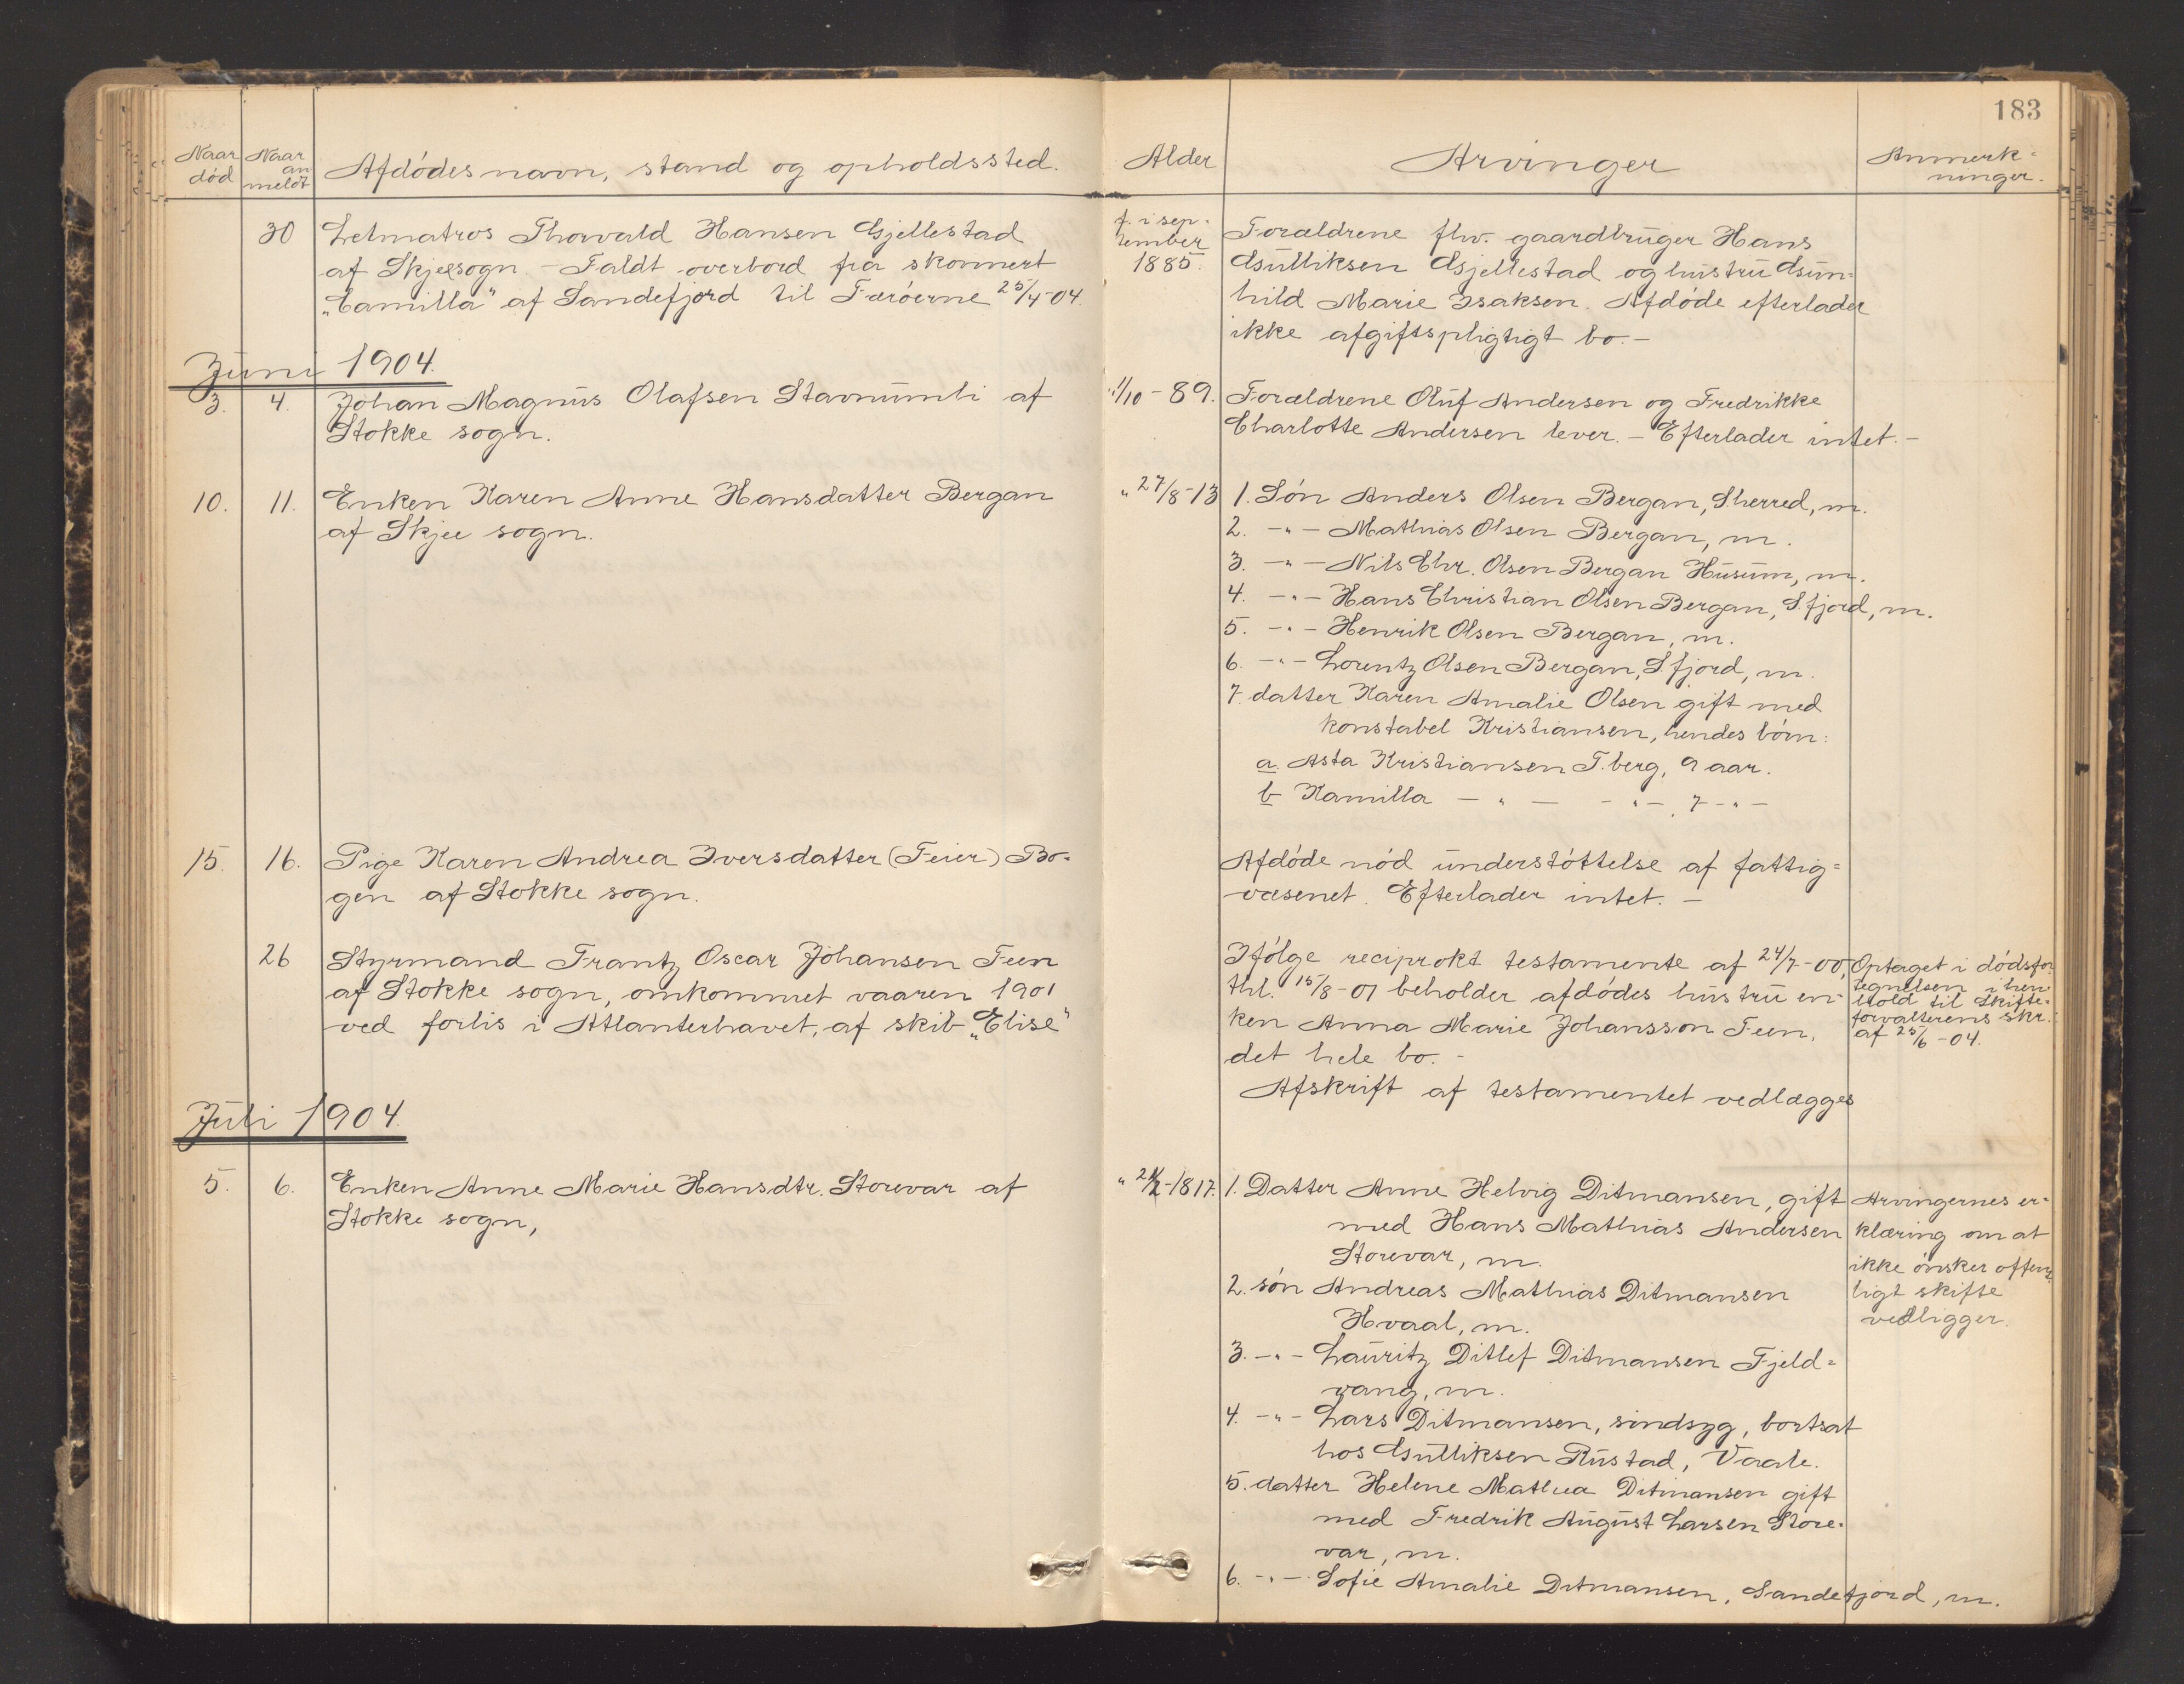 183
Naar død
Naar an meldt
Afdødes navn, stand og opholdssted.
Alder
Arvinger
Anmerk=
ninger.
30 Letmatros Thorvald Hansen Gjellestad
af Skjeesogn - Faldt overbord fra skonnert
"Camilla" af Sandefjord til Færøerne 25/4-04.
f. i sep-
tember
1885.
Forældrene fhv. gaardbruger Hans
Gulliksen Gjellestad og hustru Gun=
hild Marie Isaksen. Afdøde efterlader
ikke afgiftspligtigt bo.-
Juni 1904.
3. 4. Johan Magnus Olafsen Stavnumli af
Stokke sogn.
11/10-89.
Forældrene Oluf Andersen og Fredrikke
Charlotte Andersen lever. - Efterlader intet.-
10. 11. Enken Karen Anne Hansdatter Bergan
af Skjee sogn.
" 27/8-13
1. Søn Anders Olsen Bergan, S.herred, m.
2. -"- Mathias Olsen Bergan, m.
3. -"- Nils Chr. Olsen Bergan Husum, m.
4. -"- Hans Christian Olsen Bergan, S.fjord, m.
5. -"- Henrik Olsen Bergan, m.
6. -"- Lorentz Olsen Bergan, S.fjord, m.
7. datter Karen Amalie Olsen gift med
konstabel Kristiansen, hendes børn:
a. Asta Kristiansen T.berg, 9 aar.
b Kamilla -"- -"-, 7 -"-
15. 16. Pige Karen Andrea Iversdatter (Feier) Bo-
gen af Stokke sogn.
Afdøde nød understøttelse af fattig=
væsenet. Efterlader intet. -
26 Styrmand Frantz Oscar Johansen Feen
af Stokke sogn, omkommet vaaren 1901
ved forlis i Atlanterhavet, af skib "Elise"
Ifølge reciprokt testamente af 24/7-00,
thl. 15/8-01 beholder afdødes hustru en-
ken Anna Marie Johansson Feen,
det hele bo. -
Afskrift af testamentet vedlægges
Optaget i dødsfor
tegnelsen i hen-
hold til Skifte-
forvalterens skr.
af 25/6-04.
Juli 1904.
5. 6. Enken Anne Marie Hansdtr. Storevar af
Stokke sogn,
-1817.
1. Datter Anne Helvig Ditmansen, gift
med Hans Mathias Andersen
Storevar, m.
2. søn Andreas Mathias Ditmansen
Hvaal, m.
3. -"- Lauritz Ditlef Ditmansen Fjeld=
vang, m.
4. -"- Lars Ditmansen, sindsyg, bortsat
hos Gulliksen Rustad, Vaale.
5. datter Helene Mathea Ditmansen gift
med Fredrik August Larsen Store-
var, m.
6. -"- Sofie Amalie Ditmansen, Sandefjord, m.
Arvingernes er-
klæring om at
ikke ønsker offent-
ligt skifte
vedligger.